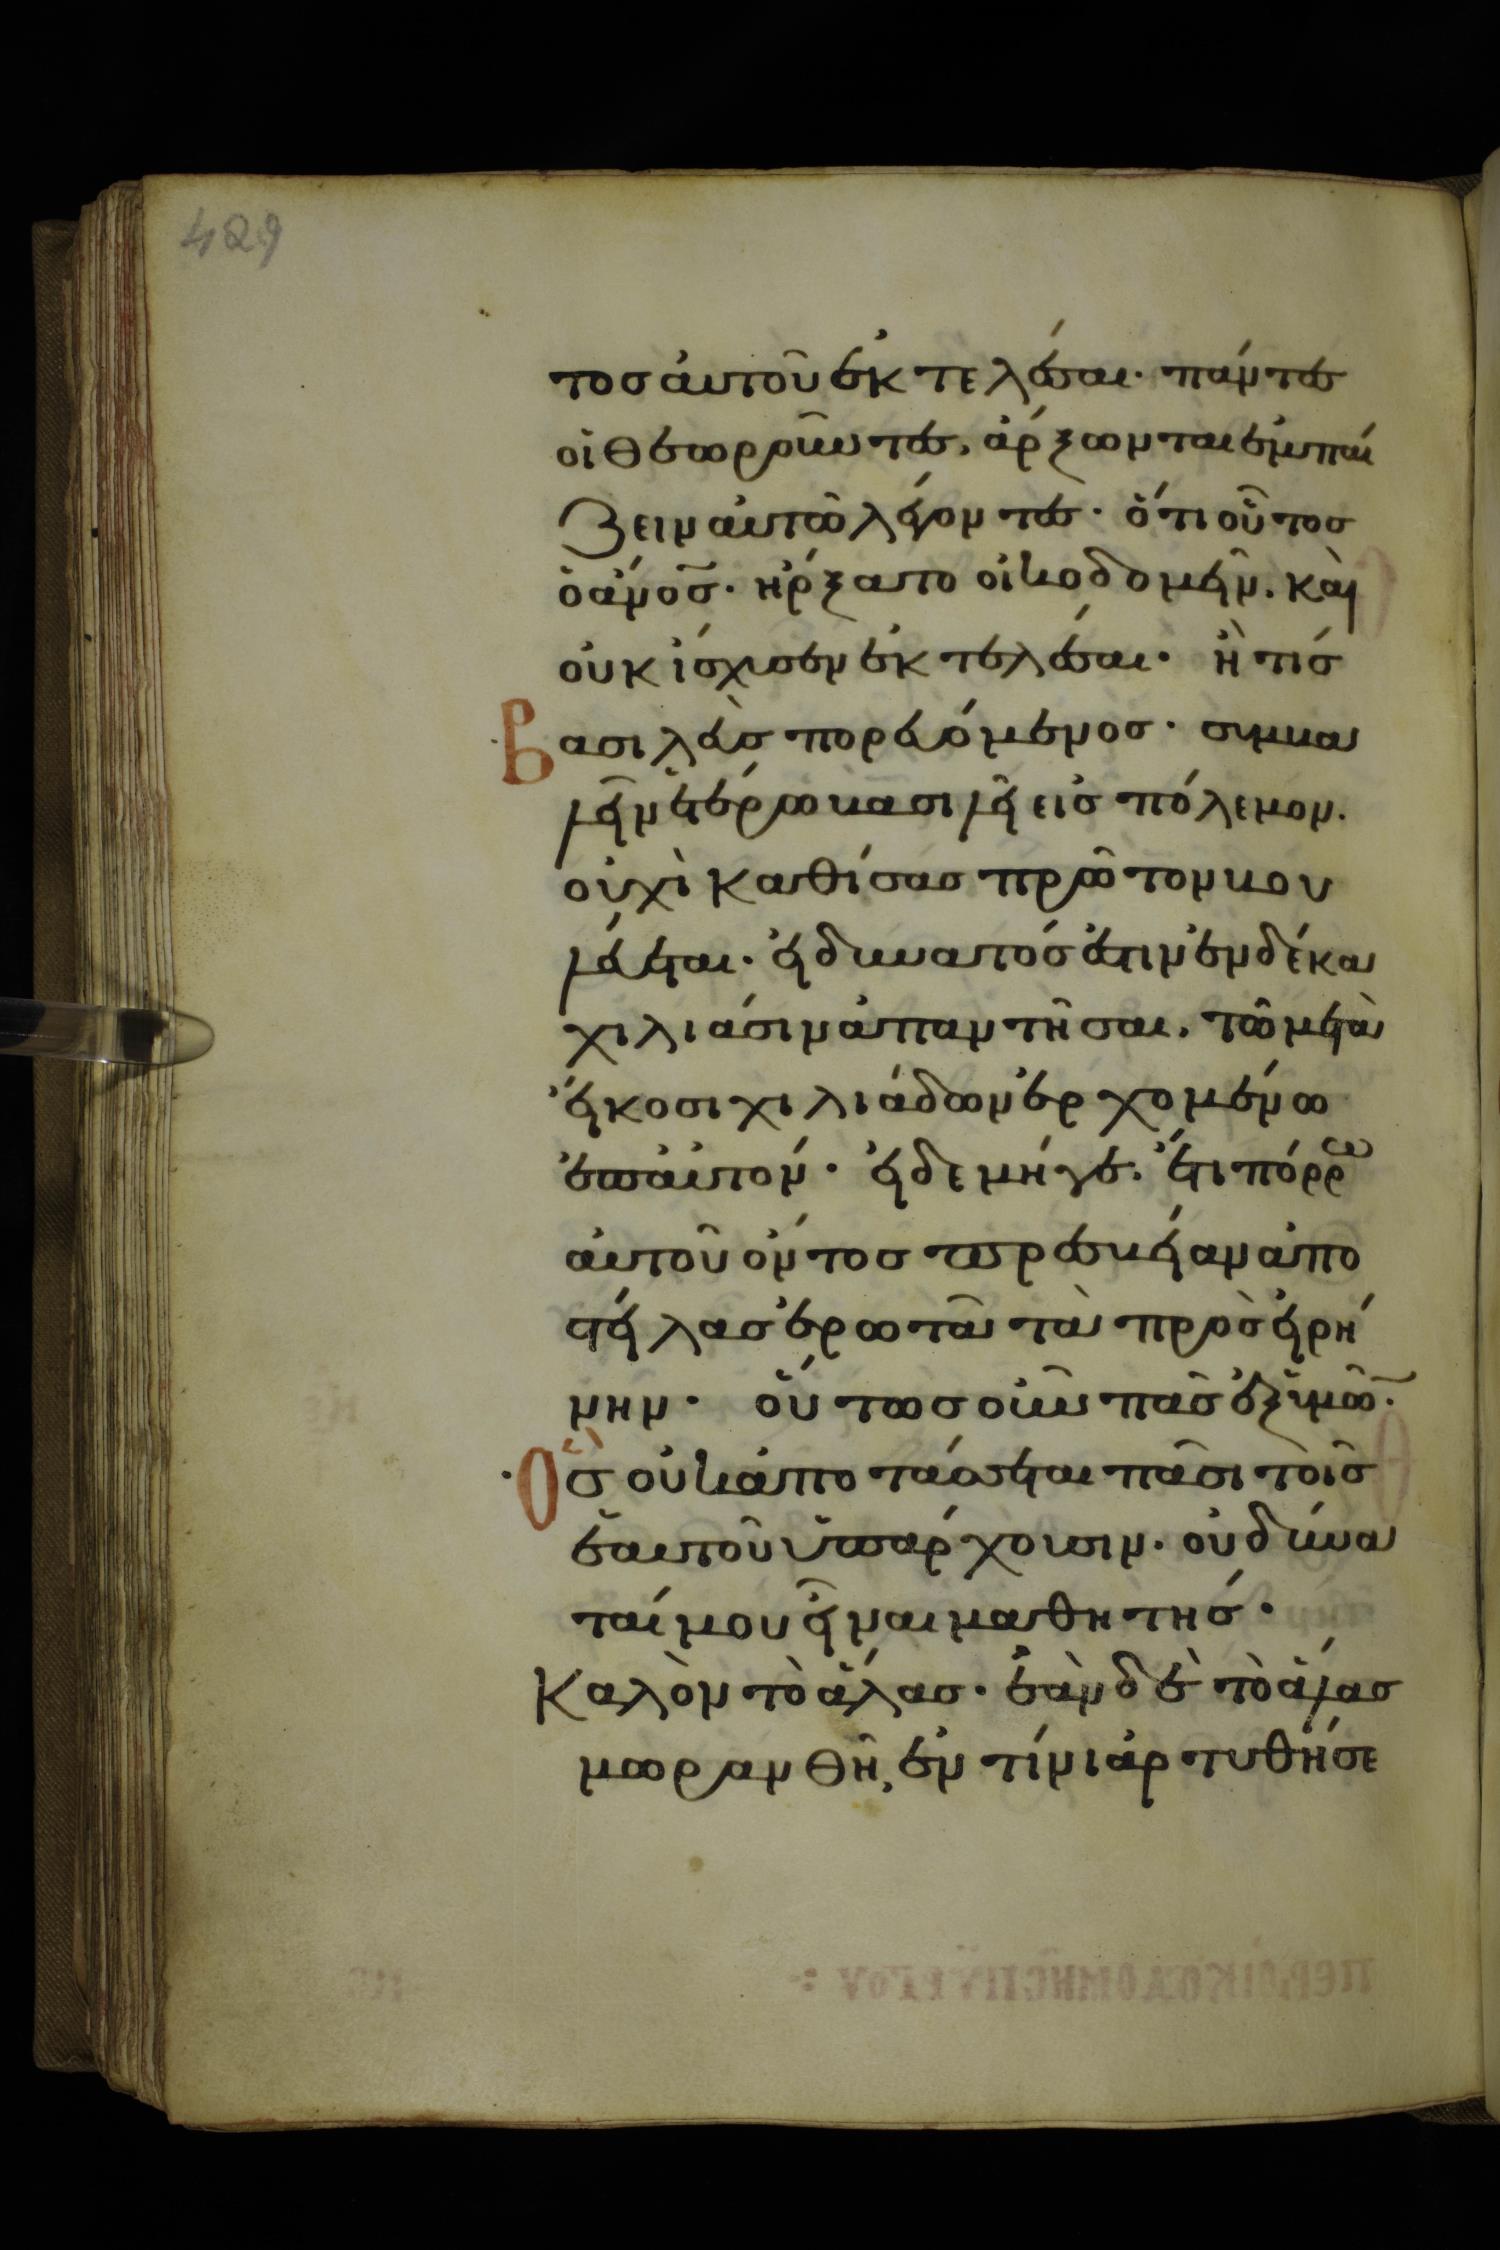 429
τοσ αὐτοῦ ἐκτελέσαι· πάντεσ
οἱ θεωροῦντεσ, ἄρξωνται ἐμπαί
ζειν αὐτῶ λέγοντεσ· ὅτι οὗτοσ
ὁ ἄνοσ̅· ἤρξατο οἰκοδομεῖν. καὶ
οὐκ ἴσχυσεν ἐκτελέσαι· ἢ τίσ
βασιλεὺσ πορευόμενοσ· συμβα
λεῖν ἑτέρω βασιλεῖ εἰσ πόλεμον.
οὐχὶ καθίσασ πρῶτον βου
λεύεται· εἰ δυνατόσ ἐστιν ἐν δέκα
χιλιάσιν ἀπαντῆσαι. τῶ μετὰ
εἴκοσι χιλιάδων ἐρχομένω
ἐπ' αὐτόν· εἰ δὲ μήγε. ἔτι πόρρω
αὐτοῦ ὄντοσ πρεσβείαν ἀπο
στείλασ ἐρωτᾶ τὰ πρὸσ εἰρή
νην· οὕτωσ οὖν πᾶσ ἐξ ὑμῶν·
ὃσ οὐκ ἀποτάσσεται πᾶσι τοῖσ
ἑαυτοῦ ὑπάρχουσιν· οὐ δύνα
ταί μου εἶναι μαθητήσ·
Καλὸν τὸ ἅλασ· ἐὰν δὲ τὸ ἅλασ
μωρανθῆ, ἐν τίνι ἀρτυθήσε